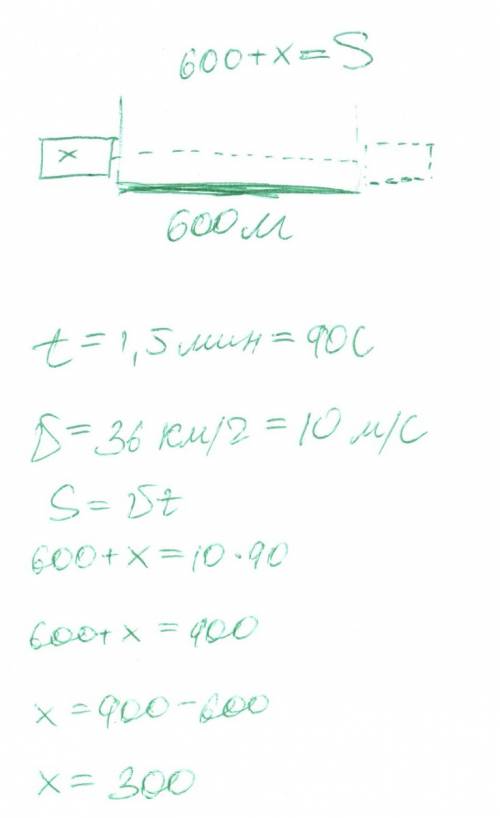 600+x=S
x
600м
t=1,5мин=90с
v=36 км/ч=10 м/с
S=vt
600+x=10·90
600+x=900
x=900-600
x=300